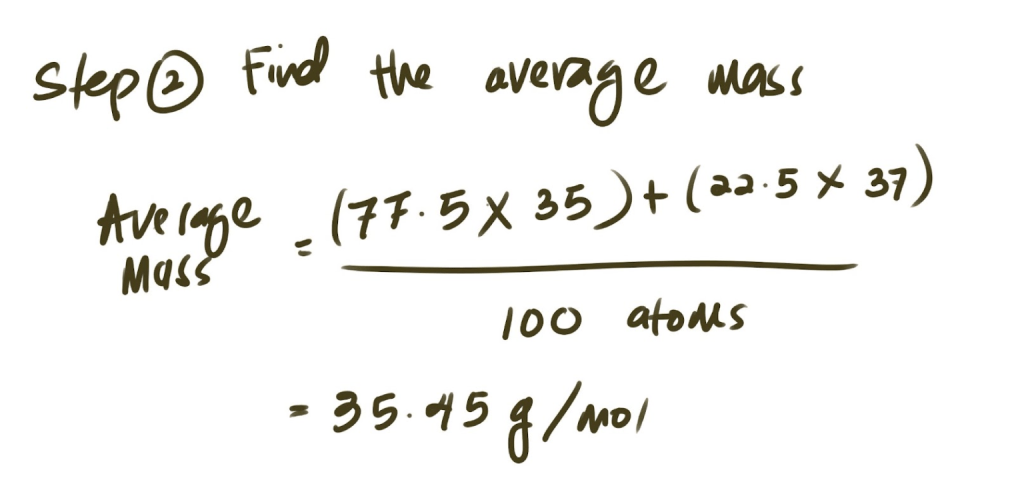 Step ② Find the average mass
Average Mass = (77.5 × 35) + (22.5 × 37)
100 atoms
= 35.45 g/mol